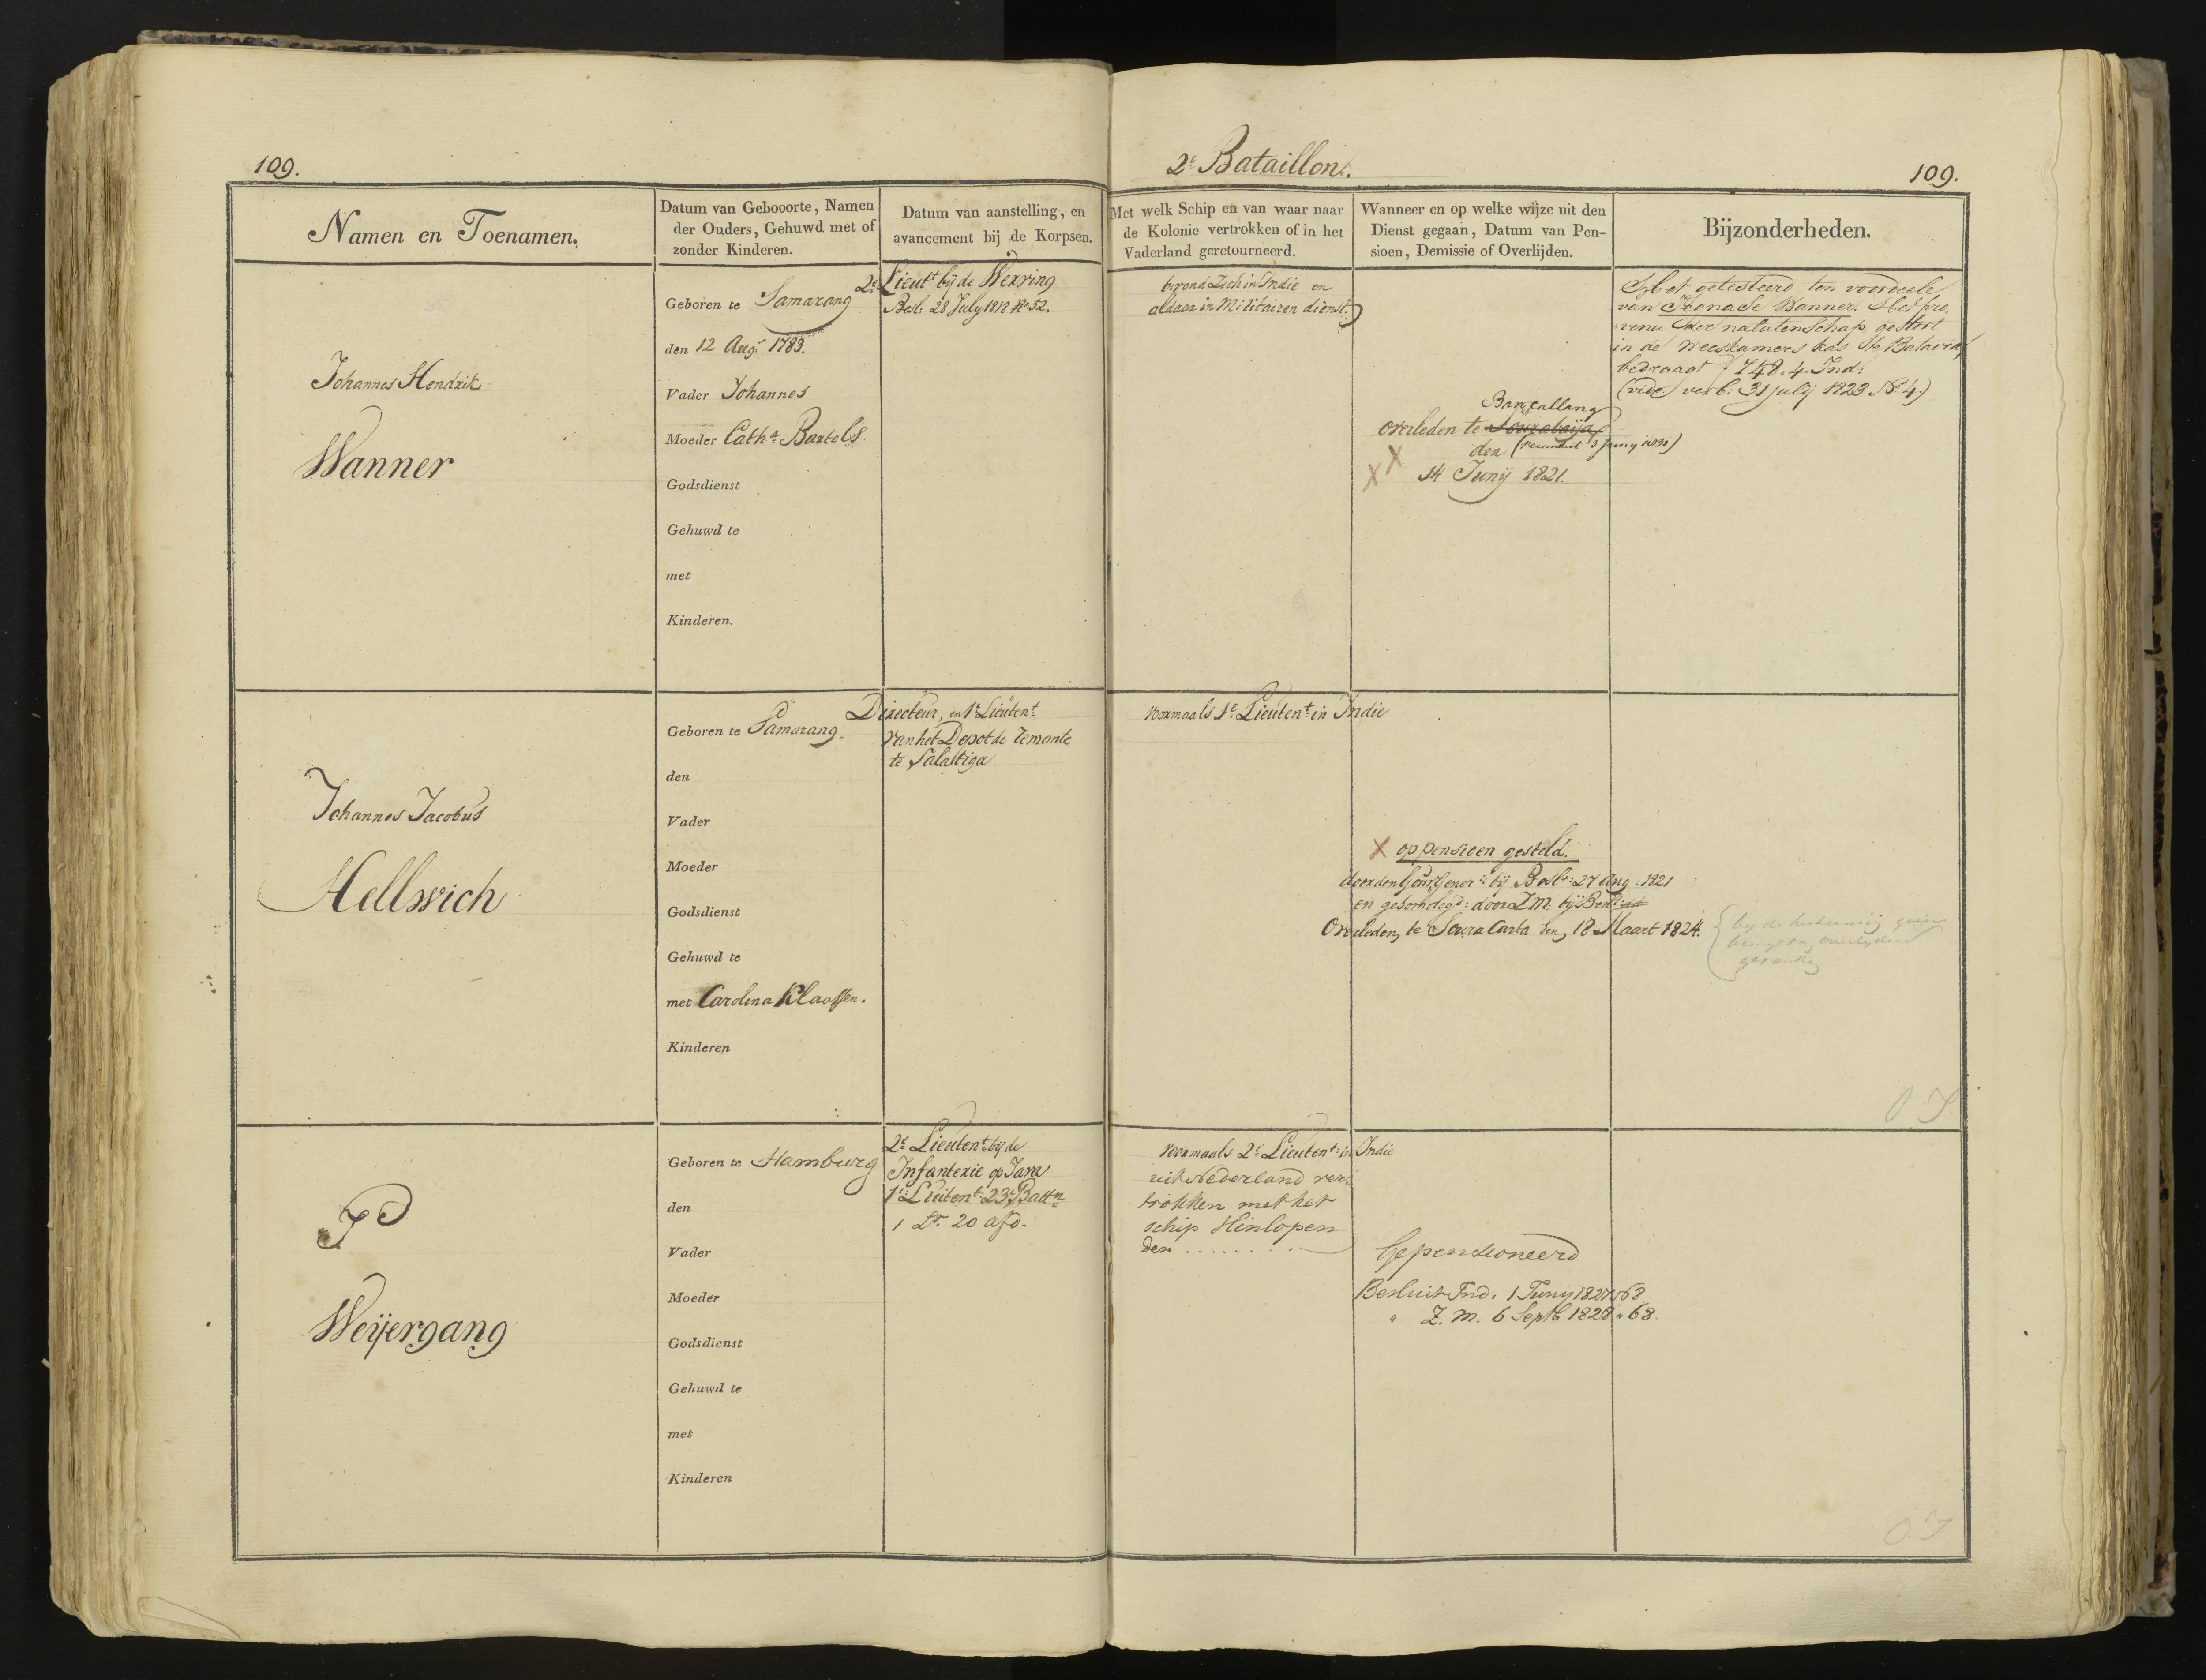 109.
2e Bataillon.
109.
Namen en Toenamen.
Datum van Gebooorte, Namen
der Ouders, Gehuwd met of
zonder Kinderen.
Datum van aanstelling, en
avancement bij de Korpsen.
Met welk Schip en van waar naar
de Kolonie vertrokken of in het
Vaderland geretourneerd.
Wanneer en op welke wijze uit den
Dienst gegaan, Datum van Pen-
sioen, Demissie of Overlijden.
Bijzonderheden.
Johannes Hendrik
Wanner
Geboren te Samarang
den 12 Augt 1783.
Vader Johannes
Moeder Catha Bartels
Godsdienst
Gehuwd te
met
Kinderen.
2e Lieutt bij de Werving
Besl: 28 July 1818 No 52.
bevond Zich in Indie en
aldaar in Militairen dienst.
Bancallang
overleden te Sourabaija
den
14 Junij 1821.
getesteerd ten voordeele
van Wanner. Het pro-
venu der nalatenschap gestort
in de weeskamers kas te Batavia
bedraagt f 748.4 Ind:
(vide verb: 31 julij 1823 No 4)
Johannes Jacobus
Hellwich
Geboren te Samarang.
den
Vader
Moeder
Godsdienst
Gehuwd te
met Carolina Klaassen.
Kinderen
Directeur, en 1e Lieutent
van het Depot de remonte
te Salattiga
voormaals 1e Lieutent in Indie
op pensioen gesteld.
door den Gouv Gener: bij Beslt: 27 Aug: 1821
door Z.M. bij Beslt
Overleden, te Soura Carta den, 18 Maart 1824.
P
Weijergang
Geboren te Hamburg
den
Vader
Moeder
Godsdienst
Gehuwd te
met
Kinderen
2e Lieutent bij de
Infanterie op Java
1e Luitent 23e Battn
1 Lt. 20 afd.
voormaals 2e Lieutent in Indie
uit Nederland ver-
trokken met het
schip Hinlopen
den . . . . . . . .
Gepensioneerd
Besluit Ind. 1 Juny 1827 n 68
" Z. M. 6 Septb 1828 " 68.